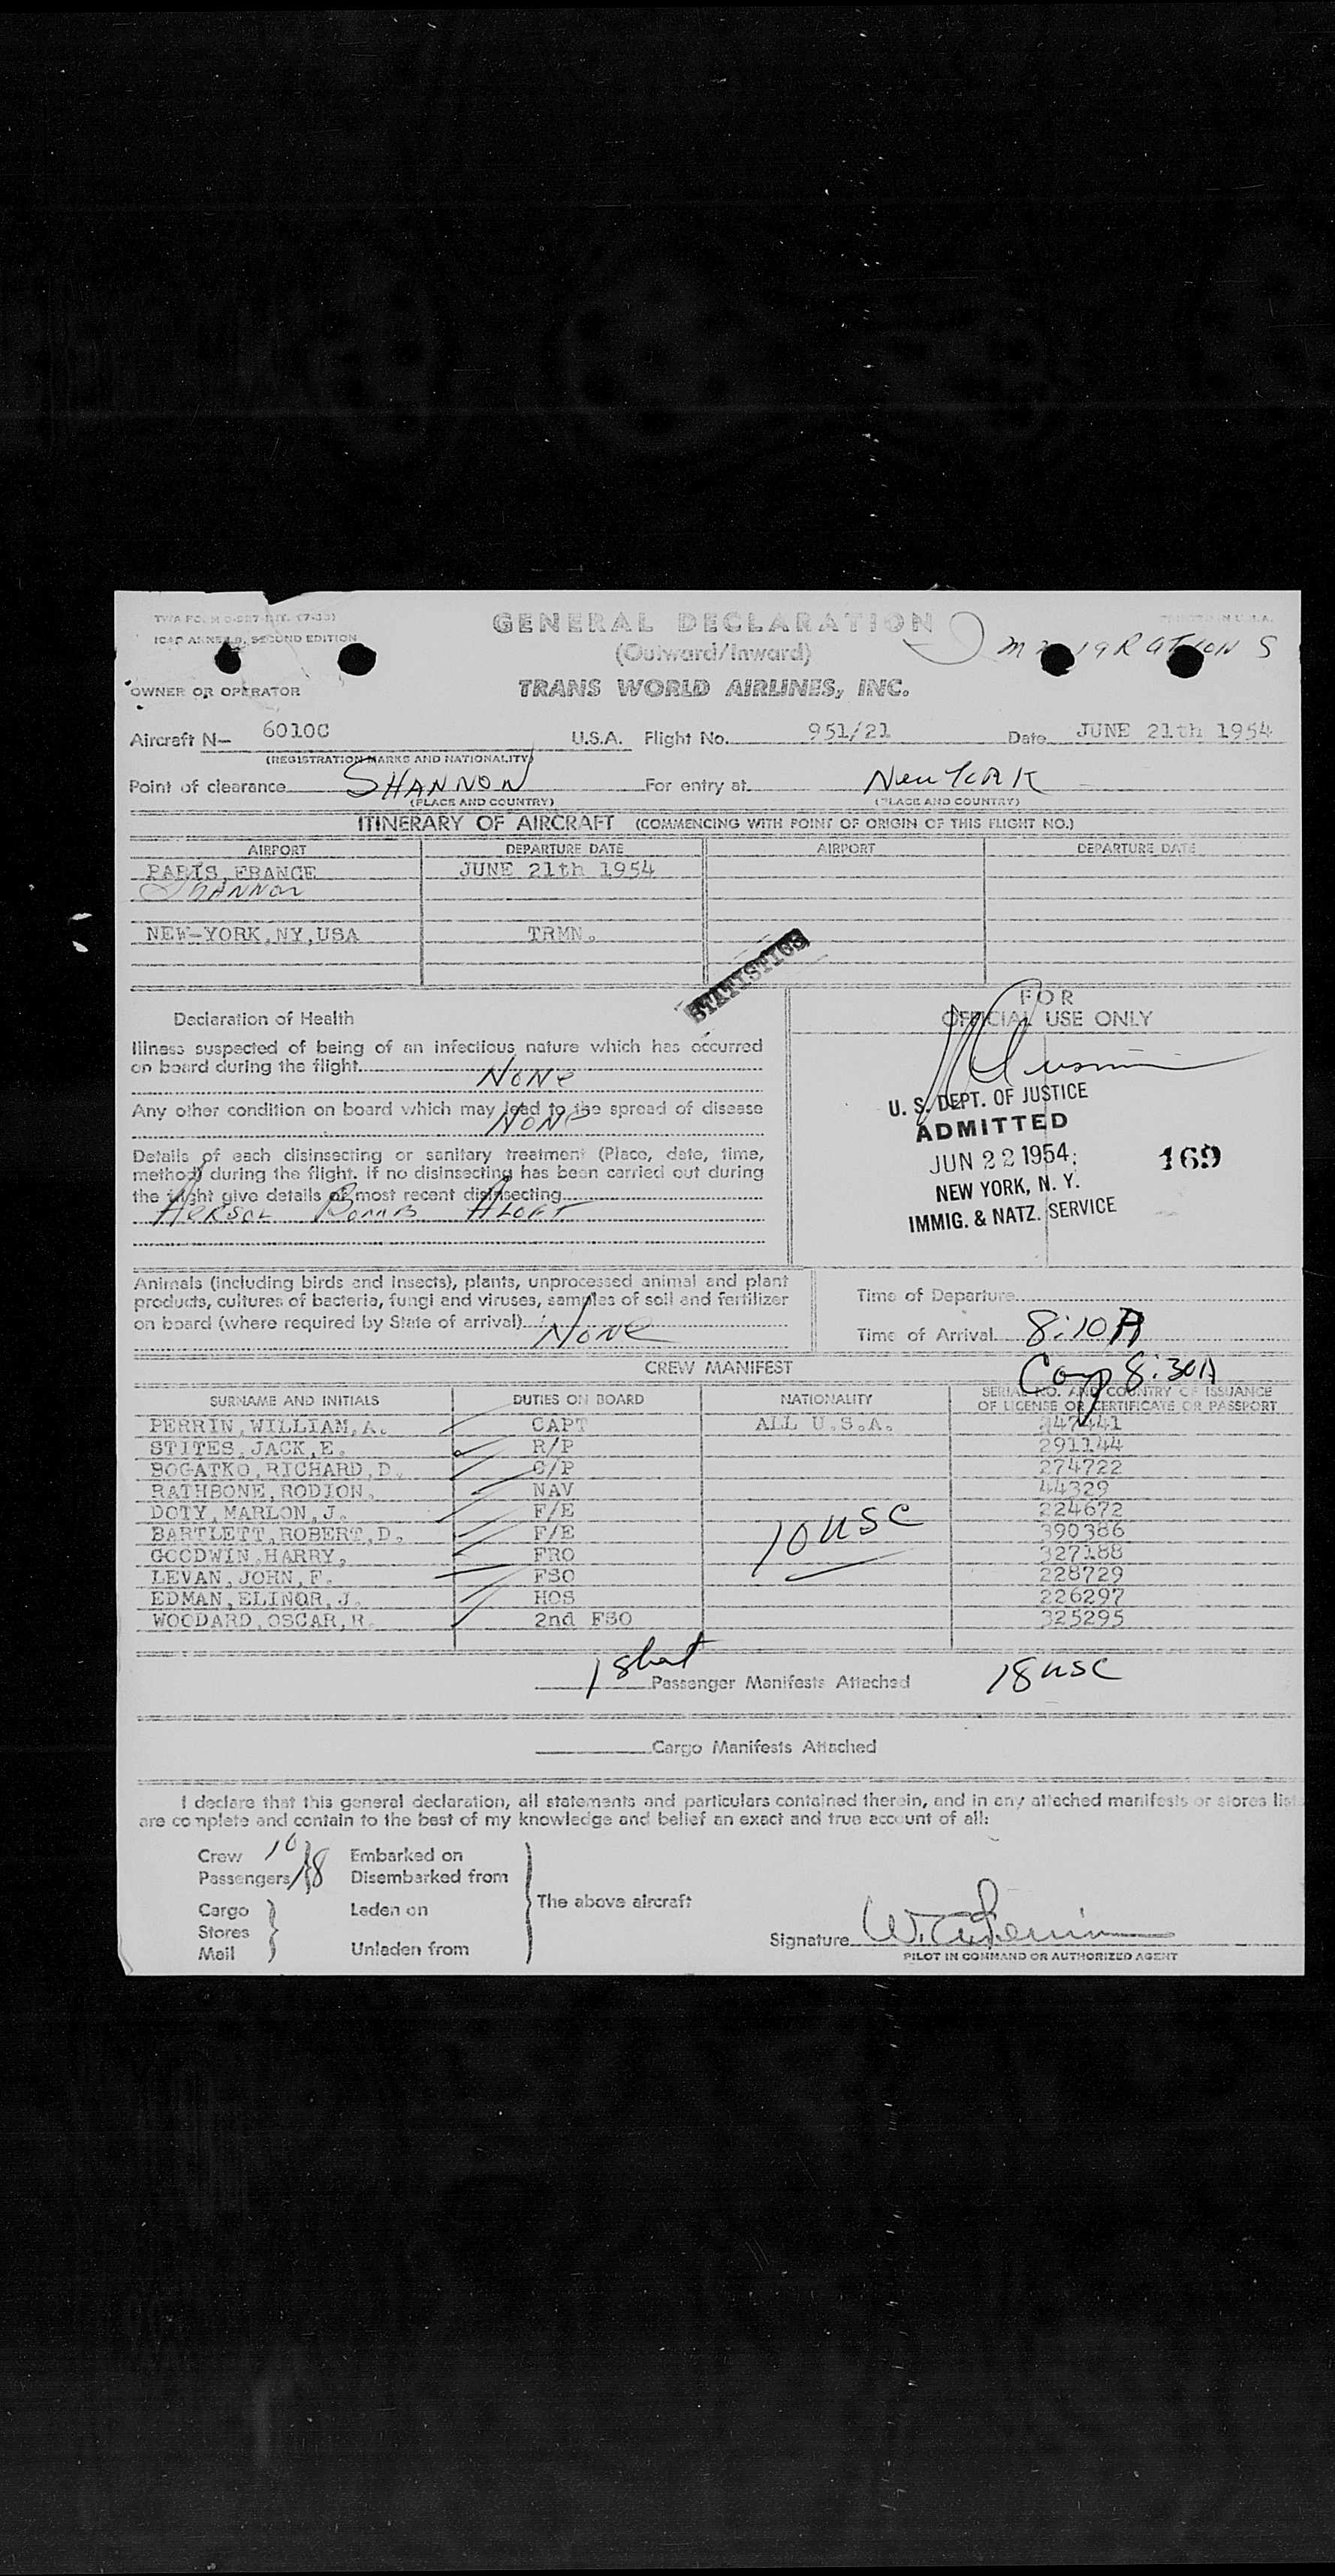 ICAO ANNEX 9, SECOND EDITION
GENERAL DECLARATION
(Outward/Inward)
OWNER OR OPERATOR TRANS WORLD AIRLINES, INC.
Aircraft N— 6010C U.S.A. Flight No. 951/21 Date JUNE 21th 1954
(REGISTRATION MARKS AND NATIONALITY)
Point of clearance SHANNON For entry at New York
(PLACE AND COUNTRY) (PLACE AND COUNTRY)
ITINERARY OF AIRCRAFT (COMMENCING WITH POINT OF ORIGIN OF THIS FLIGHT NO.)
AIRPORT DEPARTURE DATE AIRPORT DEPARTURE DATE
PARIS, FRANCE JUNE 21th 1954
SHANNON
NEW-YORK,NY,USA TRMN.
STATISTICS
Declaration of Health
Illness suspected of being of an infectious nature which has occurred
on board during the flight
NONE
Any other condition on board which may lead to the spread of disease
NONE
Details of each disinsecting or sanitary treatment (Place, date, time,
method) during the flight. If no disinsecting has been carried out during
the flight give details of most recent disinsecting
AERSOL BOMBS ALOFT
FOR
OFFICIAL USE ONLY
U. S. DEPT. OF JUSTICE
ADMITTED
JUN 22 1954
169
NEW YORK, N. Y.
IMMIG. & NATZ. SERVICE
Animals (including birds and insects), plants, unprocessed animal and plant
products, cultures of bacteria, fungi and viruses, samples of soil and fertilizer
on board (where required by State of arrival)
NONE
Time of Departure
Time of Arrival 8:10A
Comp 8:30A
CREW MANIFEST
SURNAME AND INITIALS DUTIES ON BOARD NATIONALITY SERIAL NO. AND COUNTRY OF ISSUANCE
OF LICENSE OR CERTIFICATE OR PASSPORT
PERRIN,WILLIAM,A. CAPT ALL U.S.A. 447441
STITES,JACK,E. R/P 291144
BOGATKO,RICHARD,D. C/P 274722
RATHBONE,RODION. NAV 44329
DOTY,MARLON,J. F/E 224672
BARTLETT,ROBERT,D. F/E 390386
GOODWIN,HARRY, FRO 327188
LEVAN,JOHN,F. FSO 228729
EDMAN,ELINOR,J. HOS 226297
WOODARD,OSCAR,R. 2nd FSO 325295
10 USC
1 Sheet Passenger Manifests Attached 18 USC
Cargo Manifests Attached
I declare that this general declaration, all statements and particulars contained therein, and in any attached manifests or stores lists
are complete and contain to the best of my knowledge and belief an exact and true account of all:
Crew 10 Embarked on
Passengers 18 Disembarked from
Cargo Laden on The above aircraft
Stores
Mail Unladen from
Signature W. A. Perrin
PILOT IN COMMAND OR AUTHORIZED AGENT